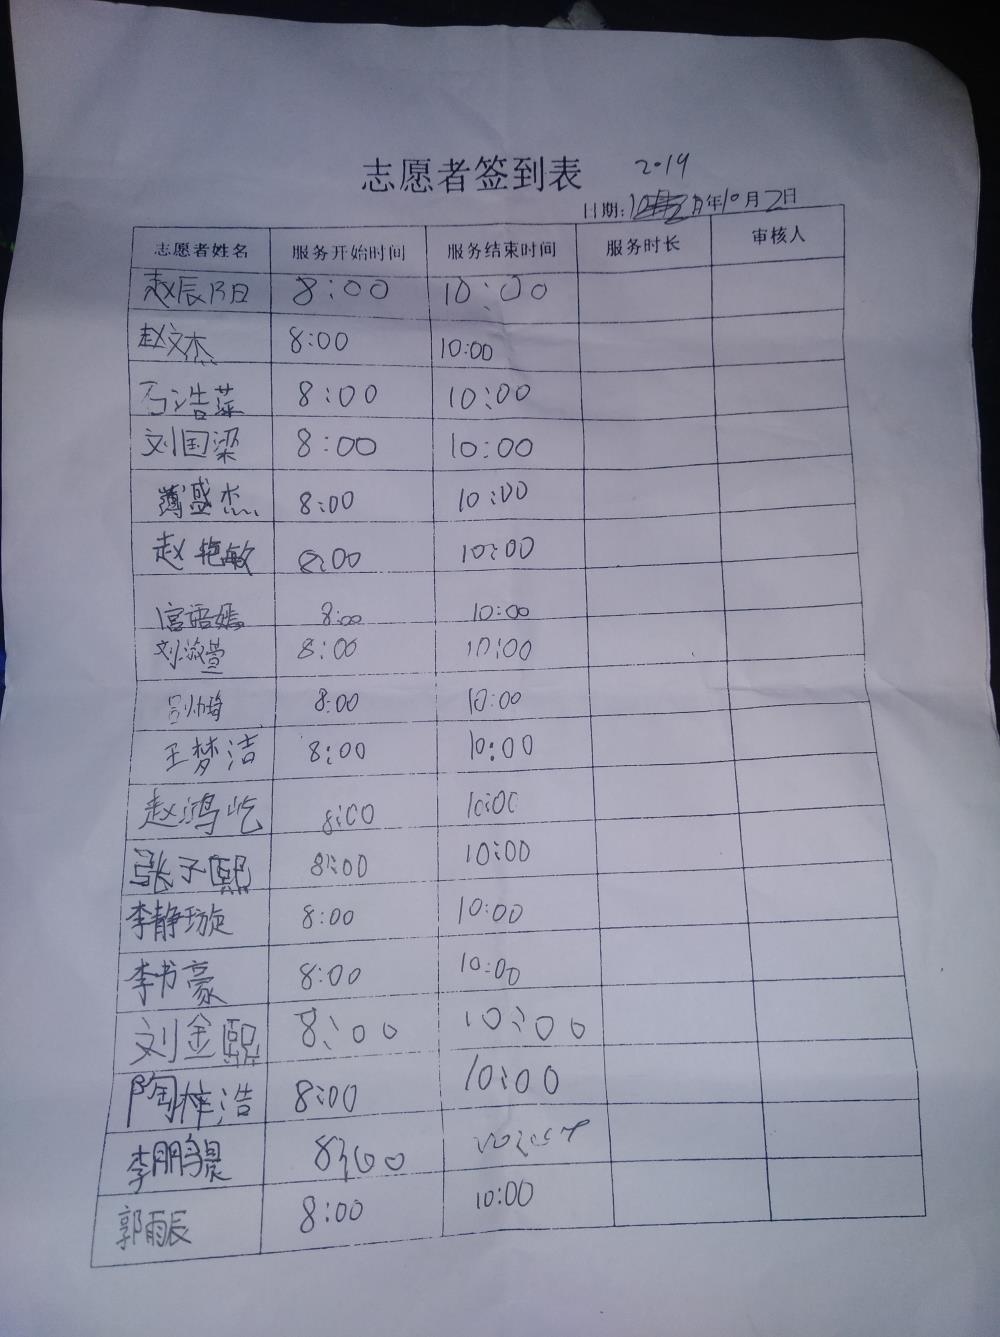 志愿者签到表 2019
日期: 年10月2日
志愿者姓名 服务开始时间 服务结束时间 服务时长 审核人
赵辰阳 8:00 10:00
赵文杰 8:00 10:00
石浩萍 8:00 10:00
刘国梁 8:00 10:00
薄盛杰 8:00 10:00
赵艳敏 8:00 10:00
宫语嫣 8:00 10:00
刘淑萱 8:00 10:00
8:00 10:00
王梦洁 8:00 10:00
赵鸿屹 8:00 10:00
张子熙 8:00 10:00
李静璇 8:00 10:00
李书豪 8:00 10:00
刘金熙 8:00 10:00
陶梓浩 8:00 10:00
李鹏 8:00
郭雨辰 8:00 10:00